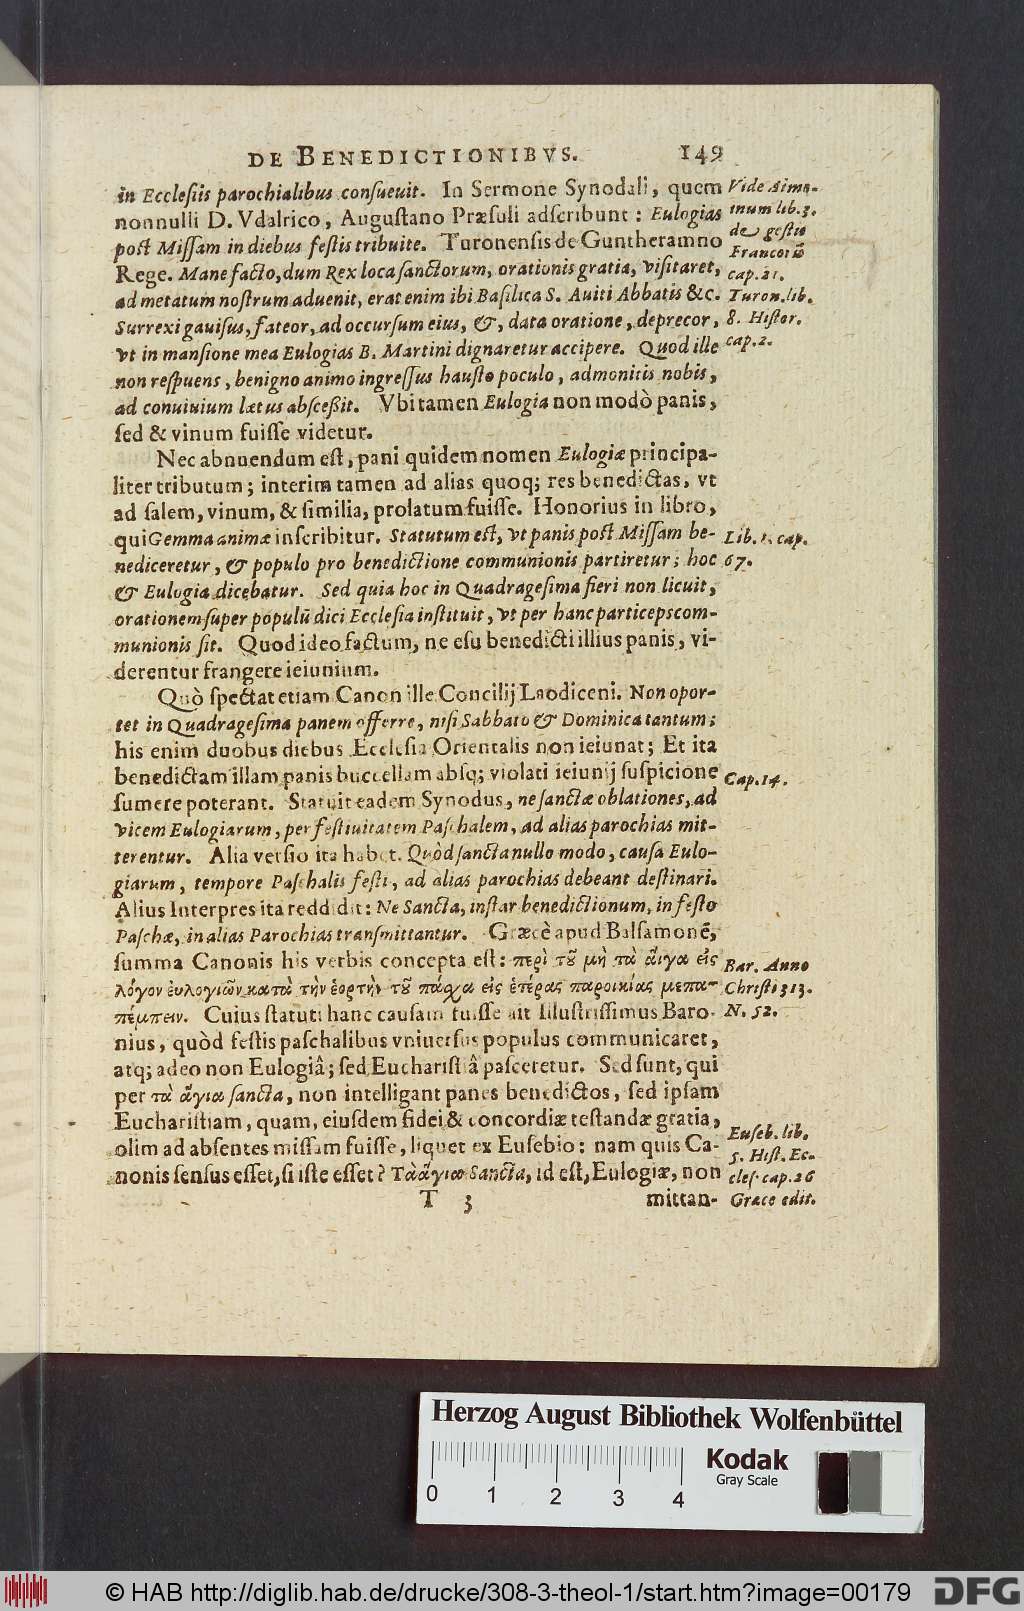 DE BENEDICTIONIBVS. 149
in Ecclesiis parochialibus consueuit. In Sermone Synodali, quem
nonnulli D. Vdalrico, Augustano Præsuli adscribunt: Eulogias
post Missam in diebus festis tribuite. Turonensis de Guntheramno
Rege. Mane facto, dum Rex loca sanctorum, orationis gratia, visitaret,
ad metatum nostrum aduenit, erat enim ibi Basilica S. Auiti Abbatis &c.
Surrexi gauisus, fateor, ad occursum eius, &, data oratione, deprecor,
vt in mansione mea Eulogias B. Martini dignaretur accipere. Quod ille
non respuens, benigno animo ingressus hausto poculo, admonitis nobis,
ad conuiuium lætus abscessit. Vbi tamen Eulogia non modò panis,
sed & vinum fuisse videtur.
Nec abnuendum est, pani quidem nomen Eulogiæ principa-
liter tributum; interim tamen ad alias quoq; res benedictas, vt
ad salem, vinum, & similia, prolatum fuisse. Honorius in libro,
qui Gemma animæ inscribitur. Statutum est, vt panis post Missam be-
nediceretur, & populo pro benedictione communionis partiretur; hoc
& Eulogia dicebatur. Sed quia hoc in Quadragesima fieri non licuit,
orationem super populū dici Ecclesia instituit, vt per hanc particeps com-
munionis sit. Quod ideo factum, ne esu benedicti illius panis, vi-
derentur frangere ieiunium.
Quò spectat etiam Canon ille Concilij Laodiceni. Non opor-
tet in Quadragesima panem offerre, nisi Sabbato & Dominica tantum;
his enim duobus diebus Ecclesia Orientalis non ieiunat; Et ita
benedictam illam panis buccellam absq; violati ieiunij suspicione
sumere poterant. Statuit eadem Synodus, ne sanctæ oblationes, ad
vicem Eulogiarum, per festiuitatem Paschalem, ad alias parochias mit-
terentur. Alia versio ita habet. Quòd sancta nullo modo, causa Eulo-
giarum, tempore Paschalis festi, ad alias parochias debeant destinari.
Alius Interpres ita reddidit: Ne Sancta, instar benedictionum, in festo
Paschæ, in alias Parochias transmittantur. Græcè apud Balsamonē,
summa Canonis his verbis concepta est: περὶ τοῦ μὴ τὰ ἅγια εἰς
λόγον ἐυλογιῶν κατὰ τὴν ἑορτὴν τοῦ πάσχα εἰς ἑτέρας παροικίας μεπα-
πέμπειν. Cuius statuti hanc causam fuisse ait Illustrissimus Baro-
nius, quòd festis paschalibus vniuersus populus communicaret,
atq; adeo non Eulogiâ; sed Eucharistiâ pasceretur. Sed sunt, qui
per τὰ ἅγια sancta, non intelligant panes benedictos, sed ipsam
Eucharistiam, quam, eiusdem fidei & concordiæ testandæ gratia,
olim ad absentes missam fuisse, liquet ex Eusebio: nam quis Ca-
nonis sensus esset, si iste esset? Τὰ ἅγια Sancta, id est, Eulogiæ, non
T 3 mittan-
Vide Aimo-
inum lib. 3.
de gestis
Francorū
cap. 21.
Turon. lib.
8. Histor.
cap. 2.
Lib. 1. cap.
67.
Cap. 14.
Bar. Anno
Christi 313.
N. 52.
Euseb. lib.
5. Hist. Ec-
cles. cap. 26
Græce edit.
Herzog August Bibliothek Wolfenbüttel
Kodak
Gray Scale
0 1 2 3 4
© HAB http://diglib.hab.de/drucke/308-3-theol-1/start.htm?image=00179
DFG